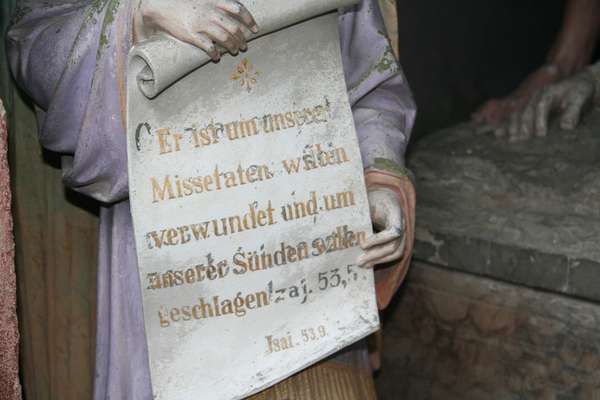 Er ist um unserer
Missetaten willn
verwundet und um
unserer Sünden willen
geschlagen Izaj. 53,5.
Jsai. 53.9.